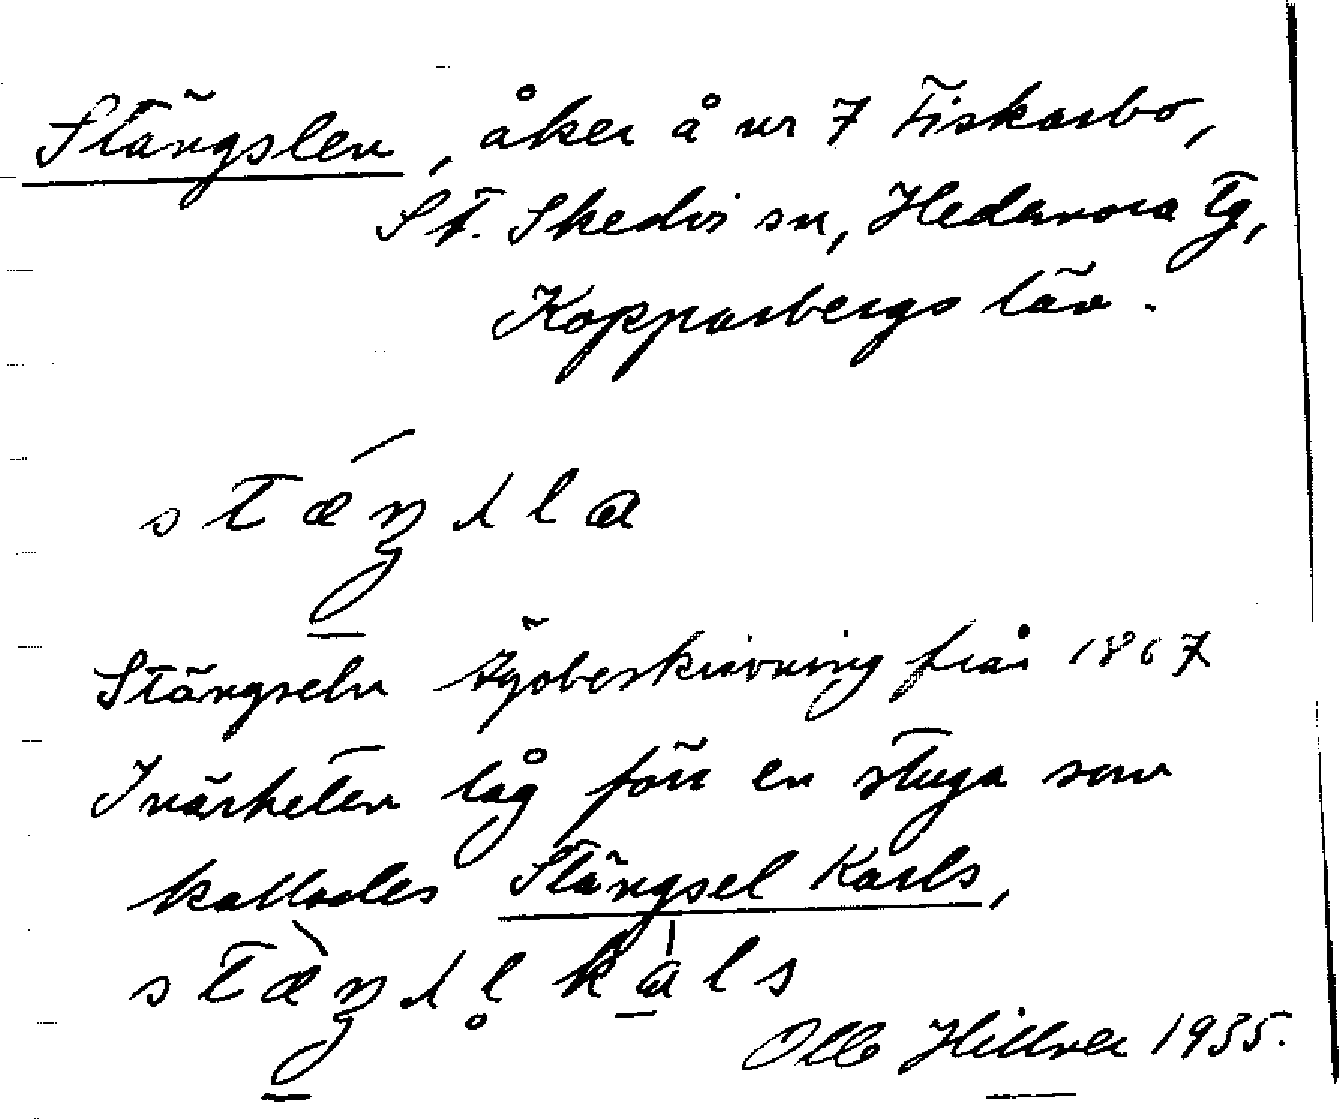 Stängslen, åker å nr 7 Fiskarbo,
St. Skedvi sn, Hedemora tg,
Kopparbergs län.
Stängseln Ägobeskrivning från 1867
I närheten låg förr en stuga som
kallades Stängsel Karls,
Olle Hillver 1935.